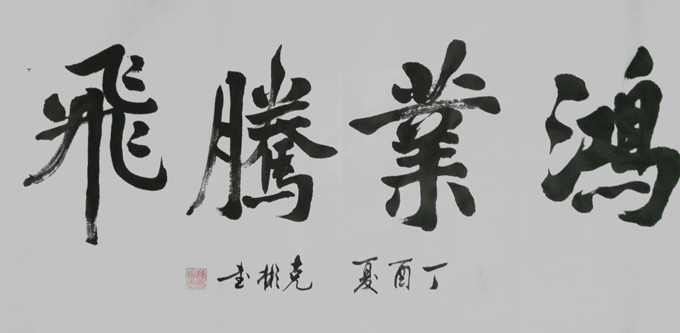 鴻業騰飛
丁酉夏 克彬书